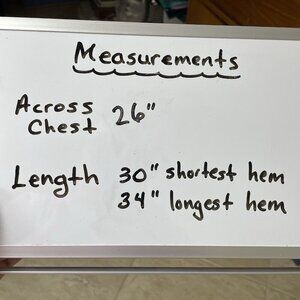 Measurements
Across 26"
Chest
Length 30" shortest hem
34" longest hem